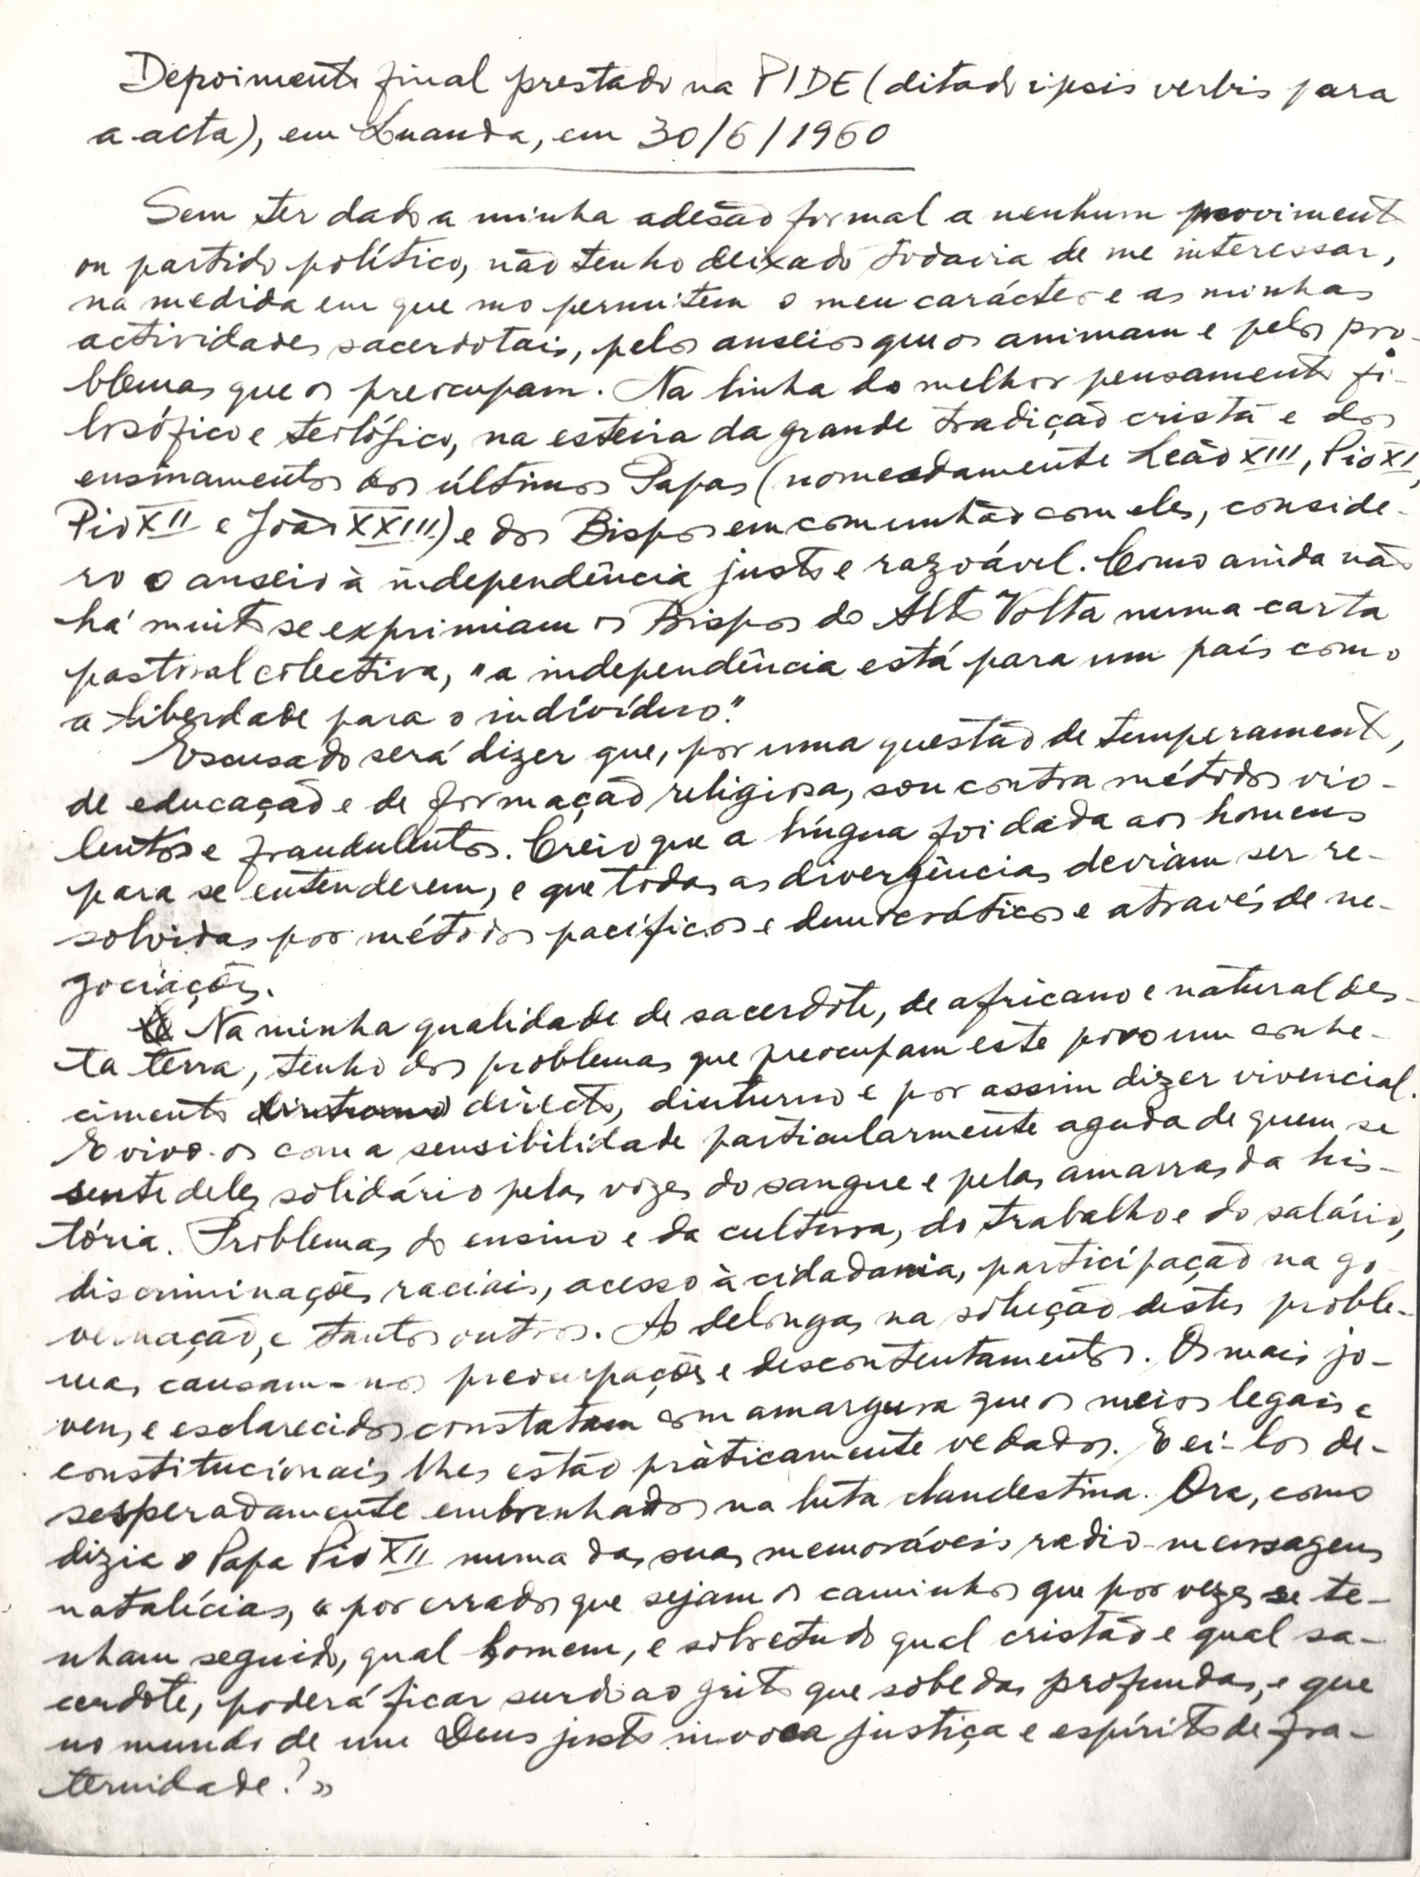 Depoimento final prestado na PIDE (ditado ipsis verbis para
a acta), em Luanda, em 30/6/1960
Sem ter dado a minha adesão formal a nenhum movimento
ou partido político, não tenho deixado todavia de me interessar,
na medida em que mo permitem o meu carácter e as minhas
actividades sacerdotais, pelos anseios que os animam e pelos pro-
blemas que os preocupam. Na linha do melhor pensamento fi-
losófico e teológico, na esteira da grande tradição cristã e dos
ensinamentos dos últimos Papas (nomeadamente Leão XIII, Pio XI,
Pio XII e João XXIII) e dos Bispos em comunhão com eles, conside-
ro o anseio à independência justo e razoável. Como ainda não
há muito se exprimiam os Bispos do Alto Volta numa carta
pastoral colectiva, "a independência está para um país como
a liberdade para o indivíduo".
Escusado será dizer que, por uma questão de temperamento,
de educação e de formação religiosa, sou contra métodos vio-
lentos e fraudulentos. Creio que a língua foi dada aos homens
para se entenderem, e que todas as divergências deviam ser re-
solvidas por métodos pacíficos e democráticos e através de ne-
gociações.
Na minha qualidade de sacerdote, de africano e natural des-
ta terra, tenho dos problemas que preocupam este povo um conhe-
cimento directo, diuturno e por assim dizer vivencial.
E vivo-os com a sensibilidade particularmente aguda de quem se
sente deles solidário pelas vozes do sangue e pelas amarras da his-
tória. Problemas do ensino e da cultura, do trabalho e do salário,
discriminações raciais, acesso à cidadania, participação na go-
vernação, e tantos outros. As delongas na solução destes proble-
mas causam-nos preocupações e descontentamentos. Os mais jo-
vens e esclarecidos constatam com amargura que os meios legais e
constitucionais lhes estão pràticamente vedados. E ei-los de-
sesperadamente embrenhados na luta clandestina. Ora, como
dizia o Papa Pio XII numa das suas memoráveis radio-mensagens
natalícias, «por errados que sejam os caminhos que por vezes se te-
nham seguido, qual homem, e sobretudo qual cristão e qual sa-
cerdote, poderá ficar surdo ao grito que sobe das profundas, e que
no mundo de um Deus justo invoca justiça e espírito de fra-
ternidade?»